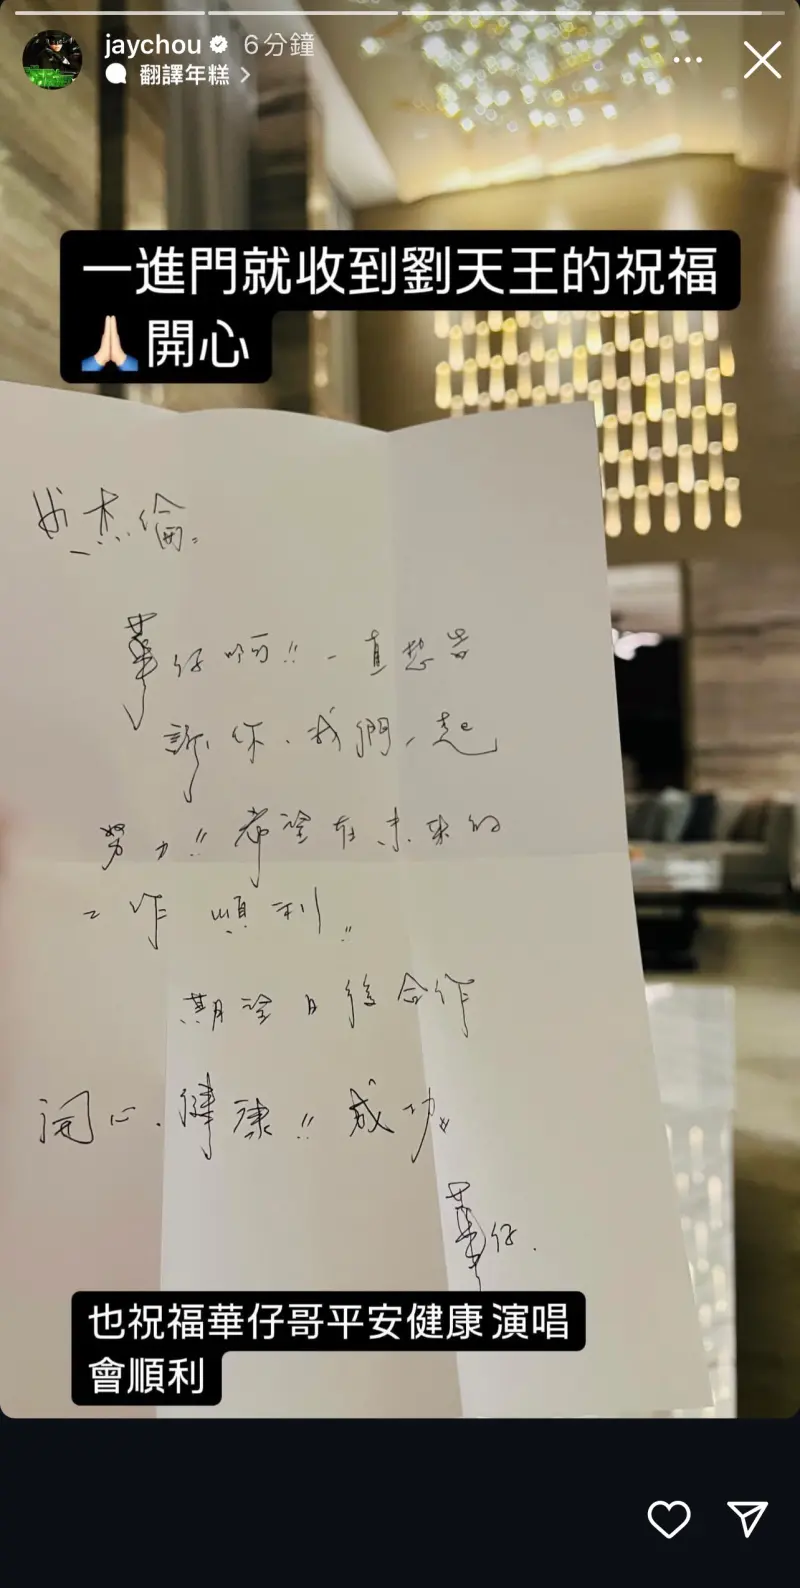 jaychou 6分鐘
翻譯年糕
一進門就收到劉天王的祝福
🙏🏻開心
杰倫
華仔啊!! 一直想告
訴你、我們一起
努力!! 希望在未來的
工作順利!!
期望日後合作
開心、健康!! 成功
華仔.
也祝福華仔哥平安健康 演唱
會順利